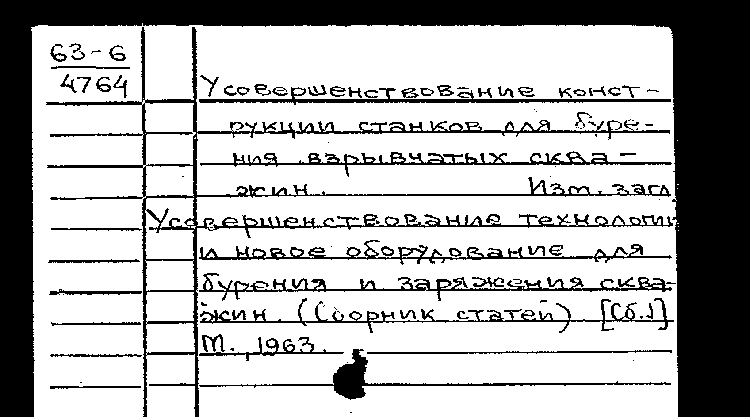 63-6
4764
Усовершенствование конст-
рукции станков для буре-
ния взрывчатых сква-
жин. Изм. загл
Усовершенствование технологии
и новое оборудование для
бурения и заряжения сква-
жин. (Сборник статей) [Сб.1]
М., 1963.